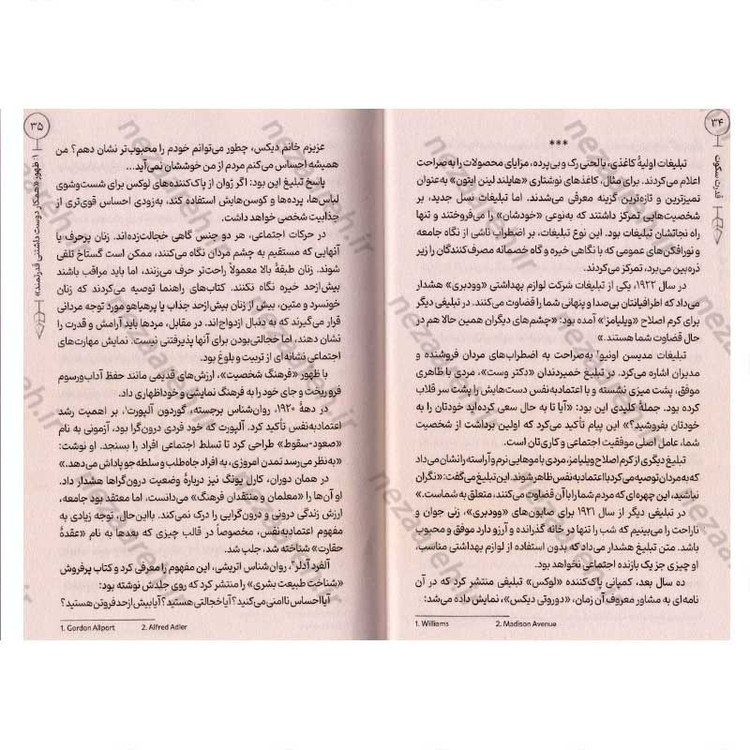 ۳۴
قدرت سکوت
***
تبلیغات اولیهٔ کاغذی، با لحنی رک و بی‌پرده، مزایای محصولات را به صراحت
اعلام می‌کردند. برای مثال، کاغذهای نوشتاری «هایلند لینن ایتون» به‌عنوان
تمیزترین و تازه‌ترین گزینه معرفی می‌شدند. اما تبلیغات نسل جدید، بر
شخصیت‌هایی تمرکز داشتند که به‌نوعی «خودشان» را می‌فروختند و تنها
راه نجاتشان تبلیغات بود. این نوع تبلیغات، بر اضطراب ناشی از نگاه جامعه
و نورافکن‌های عمومی که با نگاهی خیره و گاه خصمانه مصرف‌کنندگان را زیر
ذره‌بین می‌برد، تمرکز می‌کردند.
در سال ۱۹۲۲، یکی از تبلیغات شرکت لوازم بهداشتی «وودبری» هشدار
می‌داد که اطرافیانتان بی‌صدا و پنهانی شما را قضاوت می‌کنند. در تبلیغی دیگر
برای کرم اصلاح «ویلیامز¹» آمده بود: «چشم‌های دیگران همین حالا هم در
حال قضاوت شما هستند.»
تبلیغات مدیسن اونیو² به‌صراحت به اضطراب‌های مردان فروشنده و
مدیران اشاره می‌کرد. در تبلیغ خمیردندان «دکتر وست»، مردی با ظاهری
موفق، پشت میزی نشسته و با اعتمادبه‌نفس دست‌هایش را پشت سر قلاب
کرده بود. جملهٔ کلیدی این بود: «آیا تا به حال سعی کرده‌اید خودتان را به
خودتان بفروشید؟» این پیام تأکید می‌کرد که اولین برداشت از شخصیت
شما، عامل اصلی موفقیت اجتماعی و کاری‌تان است.
تبلیغ دیگری از کرم اصلاح ویلیامز، مردی با موهایی نرم و آراسته را نشان می‌داد
که به مردان توصیه می‌کرد با اعتمادبه‌نفس ظاهر شوند. این تبلیغ می‌گفت: «نگران
نباشید، این چهره‌ای که مردم شما را با آن قضاوت می‌کنند، متعلق به شماست.»
در تبلیغی دیگر از سال ۱۹۲۱ برای صابون‌های «وودبری»، زنی جوان و
ناراحت را می‌بینیم که شب را تنها در خانه گذرانده و آرزو دارد موفق و محبوب
باشد. متن تبلیغ هشدار می‌داد که بدون استفاده از لوازم بهداشتی مناسب،
او چیزی جز یک بازنده اجتماعی نخواهد بود.
ده سال بعد، کمپانی پاک‌کننده «لوکس» تبلیغی منتشر کرد که در آن
نامه‌ای به مشاور معروف آن زمان، «دوروتی دیکس»، نمایش داده می‌شد:
1. Williams 2. Madison Avenue
۳۵
۱: ظهور «همکار دوست داشتنی قدرتمند»
عزیزم خانم دیکس، چطور می‌توانم خودم را محبوب‌تر نشان دهم؟ من
همیشه احساس می‌کنم مردم از من خوششان نمی‌آید...
پاسخ تبلیغ این بود: اگر ژوان از پاک‌کننده‌های لوکس برای شست‌وشوی
لباس‌ها، پرده‌ها و کوسن‌هایش استفاده کند، به‌زودی احساس قوی‌تری از
جذابیت شخصی خواهد داشت.
در حرکات اجتماعی، هر دو جنس گاهی خجالت‌زده‌اند. زنان پرحرف یا
آنهایی که مستقیم به چشم مردان نگاه می‌کنند، ممکن است گستاخ تلقی
شوند. زنان طبقهٔ بالا معمولاً راحت‌تر حرف می‌زنند، اما باید مراقب باشند
بیش‌ازحد خیره نگاه نکنند. کتاب‌های راهنما توصیه می‌کردند که زنان
خونسرد و متین، بیش از زنان بیش‌ازحد جذاب یا پرهیاهو مورد توجه مردانی
قرار می‌گیرند که به دنبال ازدواج‌اند. در مقابل، مردها باید آرامش و قدرت را
نشان دهند، اما خجالتی‌بودن برای آنها پذیرفتنی نیست. نمایش مهارت‌های
اجتماعی نشانه‌ای از تربیت و بلوغ بود.
با ظهور «فرهنگ شخصیت»، ارزش‌های قدیمی مانند حفظ آداب‌ورسوم
فروریخت و جای خود را به فرهنگ نمایشی و خوداظهاری داد.
در دههٔ ۱۹۲۰، روان‌شناس برجسته، گوردون آلپورت¹، بر اهمیت رشد
اعتمادبه‌نفس تأکید کرد. آلپورت که خود فردی درون‌گرا بود، آزمونی به نام
«صعود-سقوط» طراحی کرد تا تسلط اجتماعی افراد را بسنجد. او نوشت:
«به‌نظر می‌رسد تمدن امروزی، به افراد جاه‌طلب و سلطه‌جو پاداش می‌دهد.»
در همان دوران، کارل یونگ نیز دربارهٔ وضعیت درون‌گراها هشدار داد.
او آن‌ها را «معلمان و منتقدان فرهنگ» می‌دانست، اما معتقد بود جامعه،
ارزش زندگی درونی و درون‌گرایی را درک نمی‌کند. بااین‌حال، توجه زیادی به
مفهوم اعتمادبه‌نفس، مخصوصاً در قالب چیزی که بعدها به نام «عقدهٔ
حقارت» شناخته شد، جلب شد.
آلفرد آدلر²، روان‌شناس اتریشی، این مفهوم را معرفی کرد و کتاب پرفروش
«شناخت طبیعت بشری» را منتشر کرد که روی جلدش نوشته بود:
آیا احساس ناامنی می‌کنید؟ آیا خجالتی هستید؟ آیا بیش از حد فروتن هستید؟
1. Gordon Allport 2. Alfred Adler